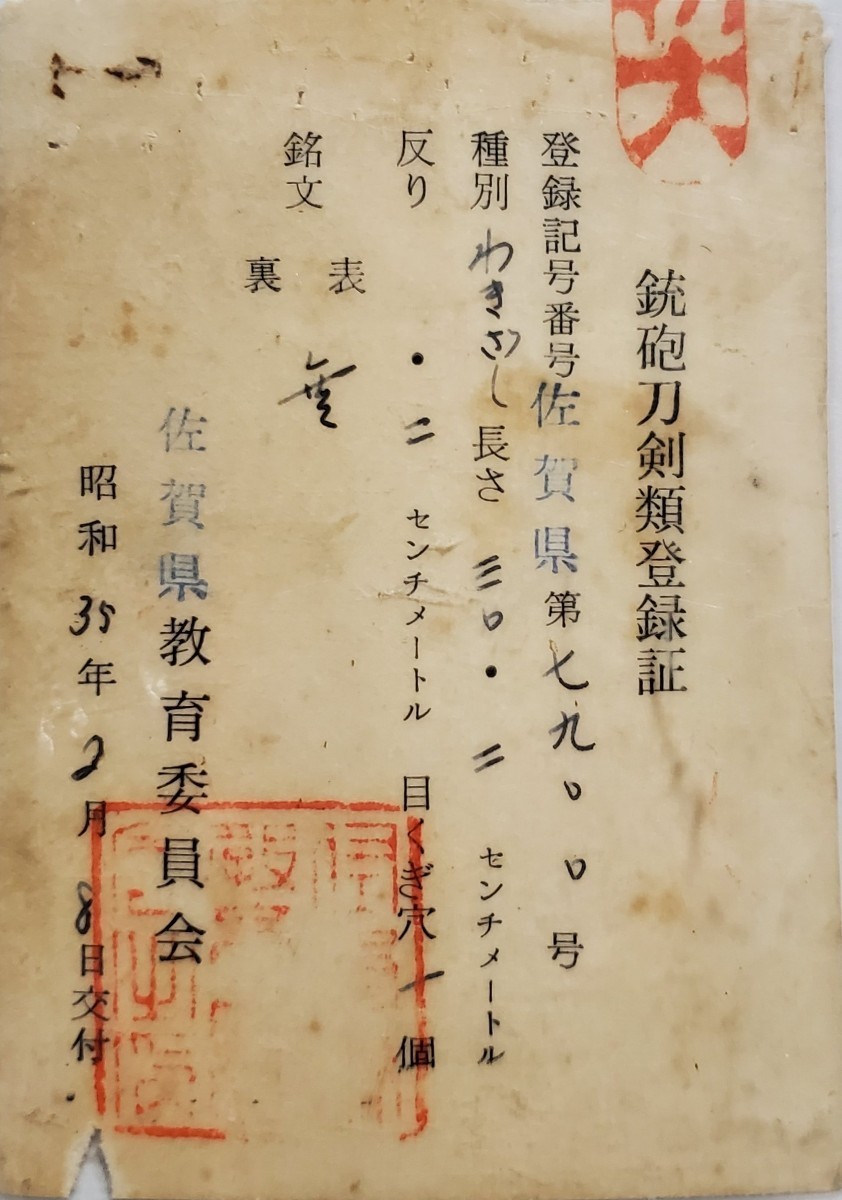 銃砲刀剣類登録証
登録記号番号佐賀県第七九〇〇号
種別わきざし長さ三〇・二センチメートル
反り・二センチメートル目くぎ穴一個
銘文
表
無
裏
佐賀県教育委員会
昭和35年2月8日交付